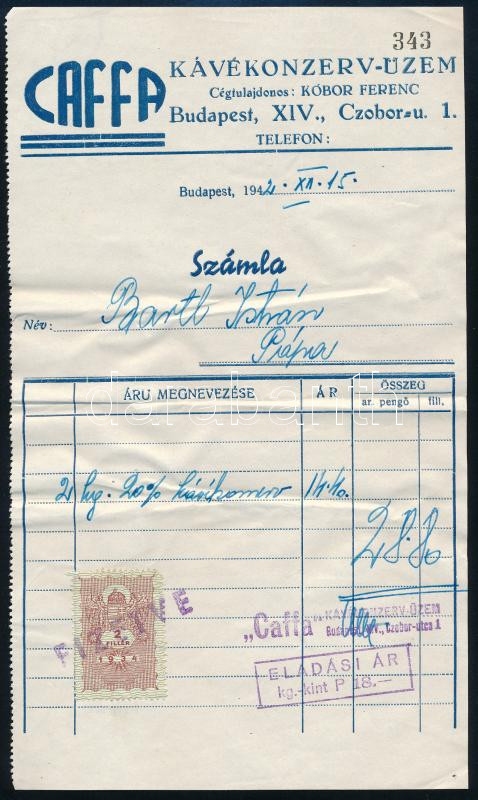 343
CAFFA
KÁVÉKONZERV-ÜZEM
Cégtulajdonos: KÓBOR FERENC
Budapest, XIV., Czobor-u. 1.
TELEFON:
Budapest, 1942. XII. 15.
Számla
Név: Bartl István
Pápa
ÁRU MEGNEVEZÉSE ÁR ÖSSZEG
ar. pengő fill.
darabanth
2 kg. 20% kávékonzerv 14.40.
28.80
FIZETVE
2
FILLÉR
1934
„Caffa" KÁVÉKONZERV-ÜZEM
Budapest, XIV., Czobor-utca 1
ELADÁSI ÁR
kg.-kint P 18.—